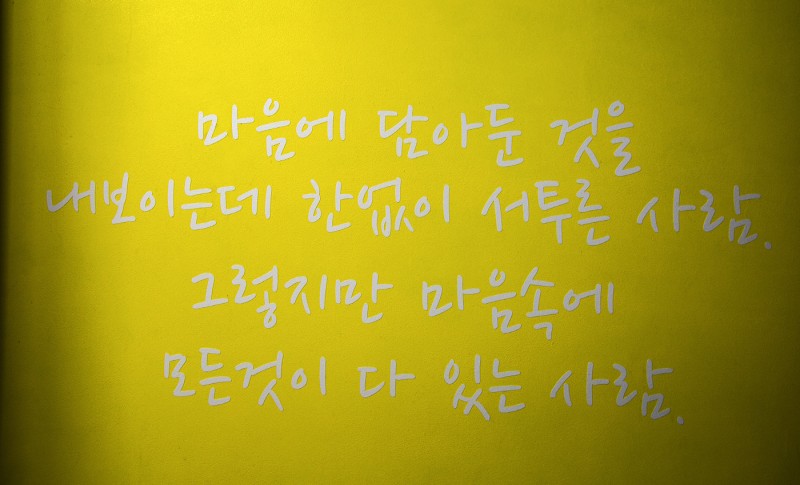 마음에 담아둔 것을
내보이는데 한없이 서투른 사람.
그렇지만 마음속에
모든것이 다 있는 사람.